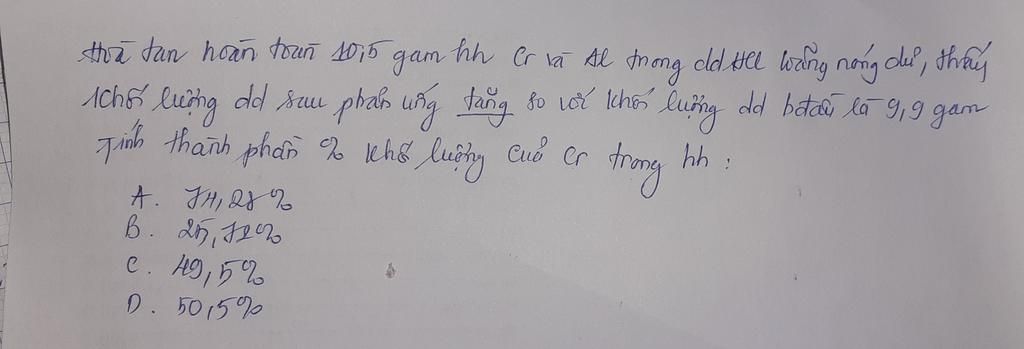 Hoà tan hoàn toàn 10,5 gam hh Cr và Al trong dd HCl loãng nóng dư, thấy
khối lượng dd sau phản ứng tăng so với khối lượng dd bđầu là 9,9 gam
Tính thành phần % khối lượng của Cr trong hh :
A. 74,28%
B. 25,72%
C. 49,5%
D. 50,5%